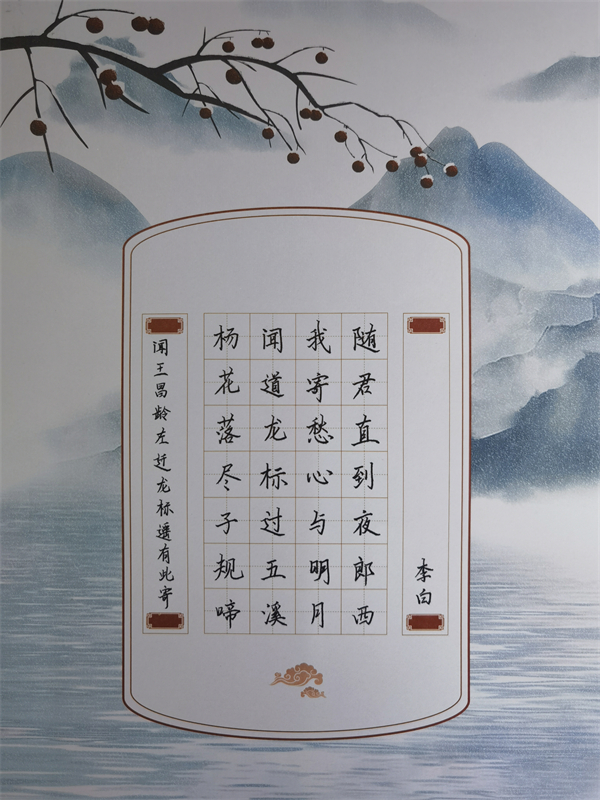 闻王昌龄左迁龙标遥有此寄
杨花落尽子规啼
闻道龙标过五溪
我寄愁心与明月
随君直到夜郎西
李白